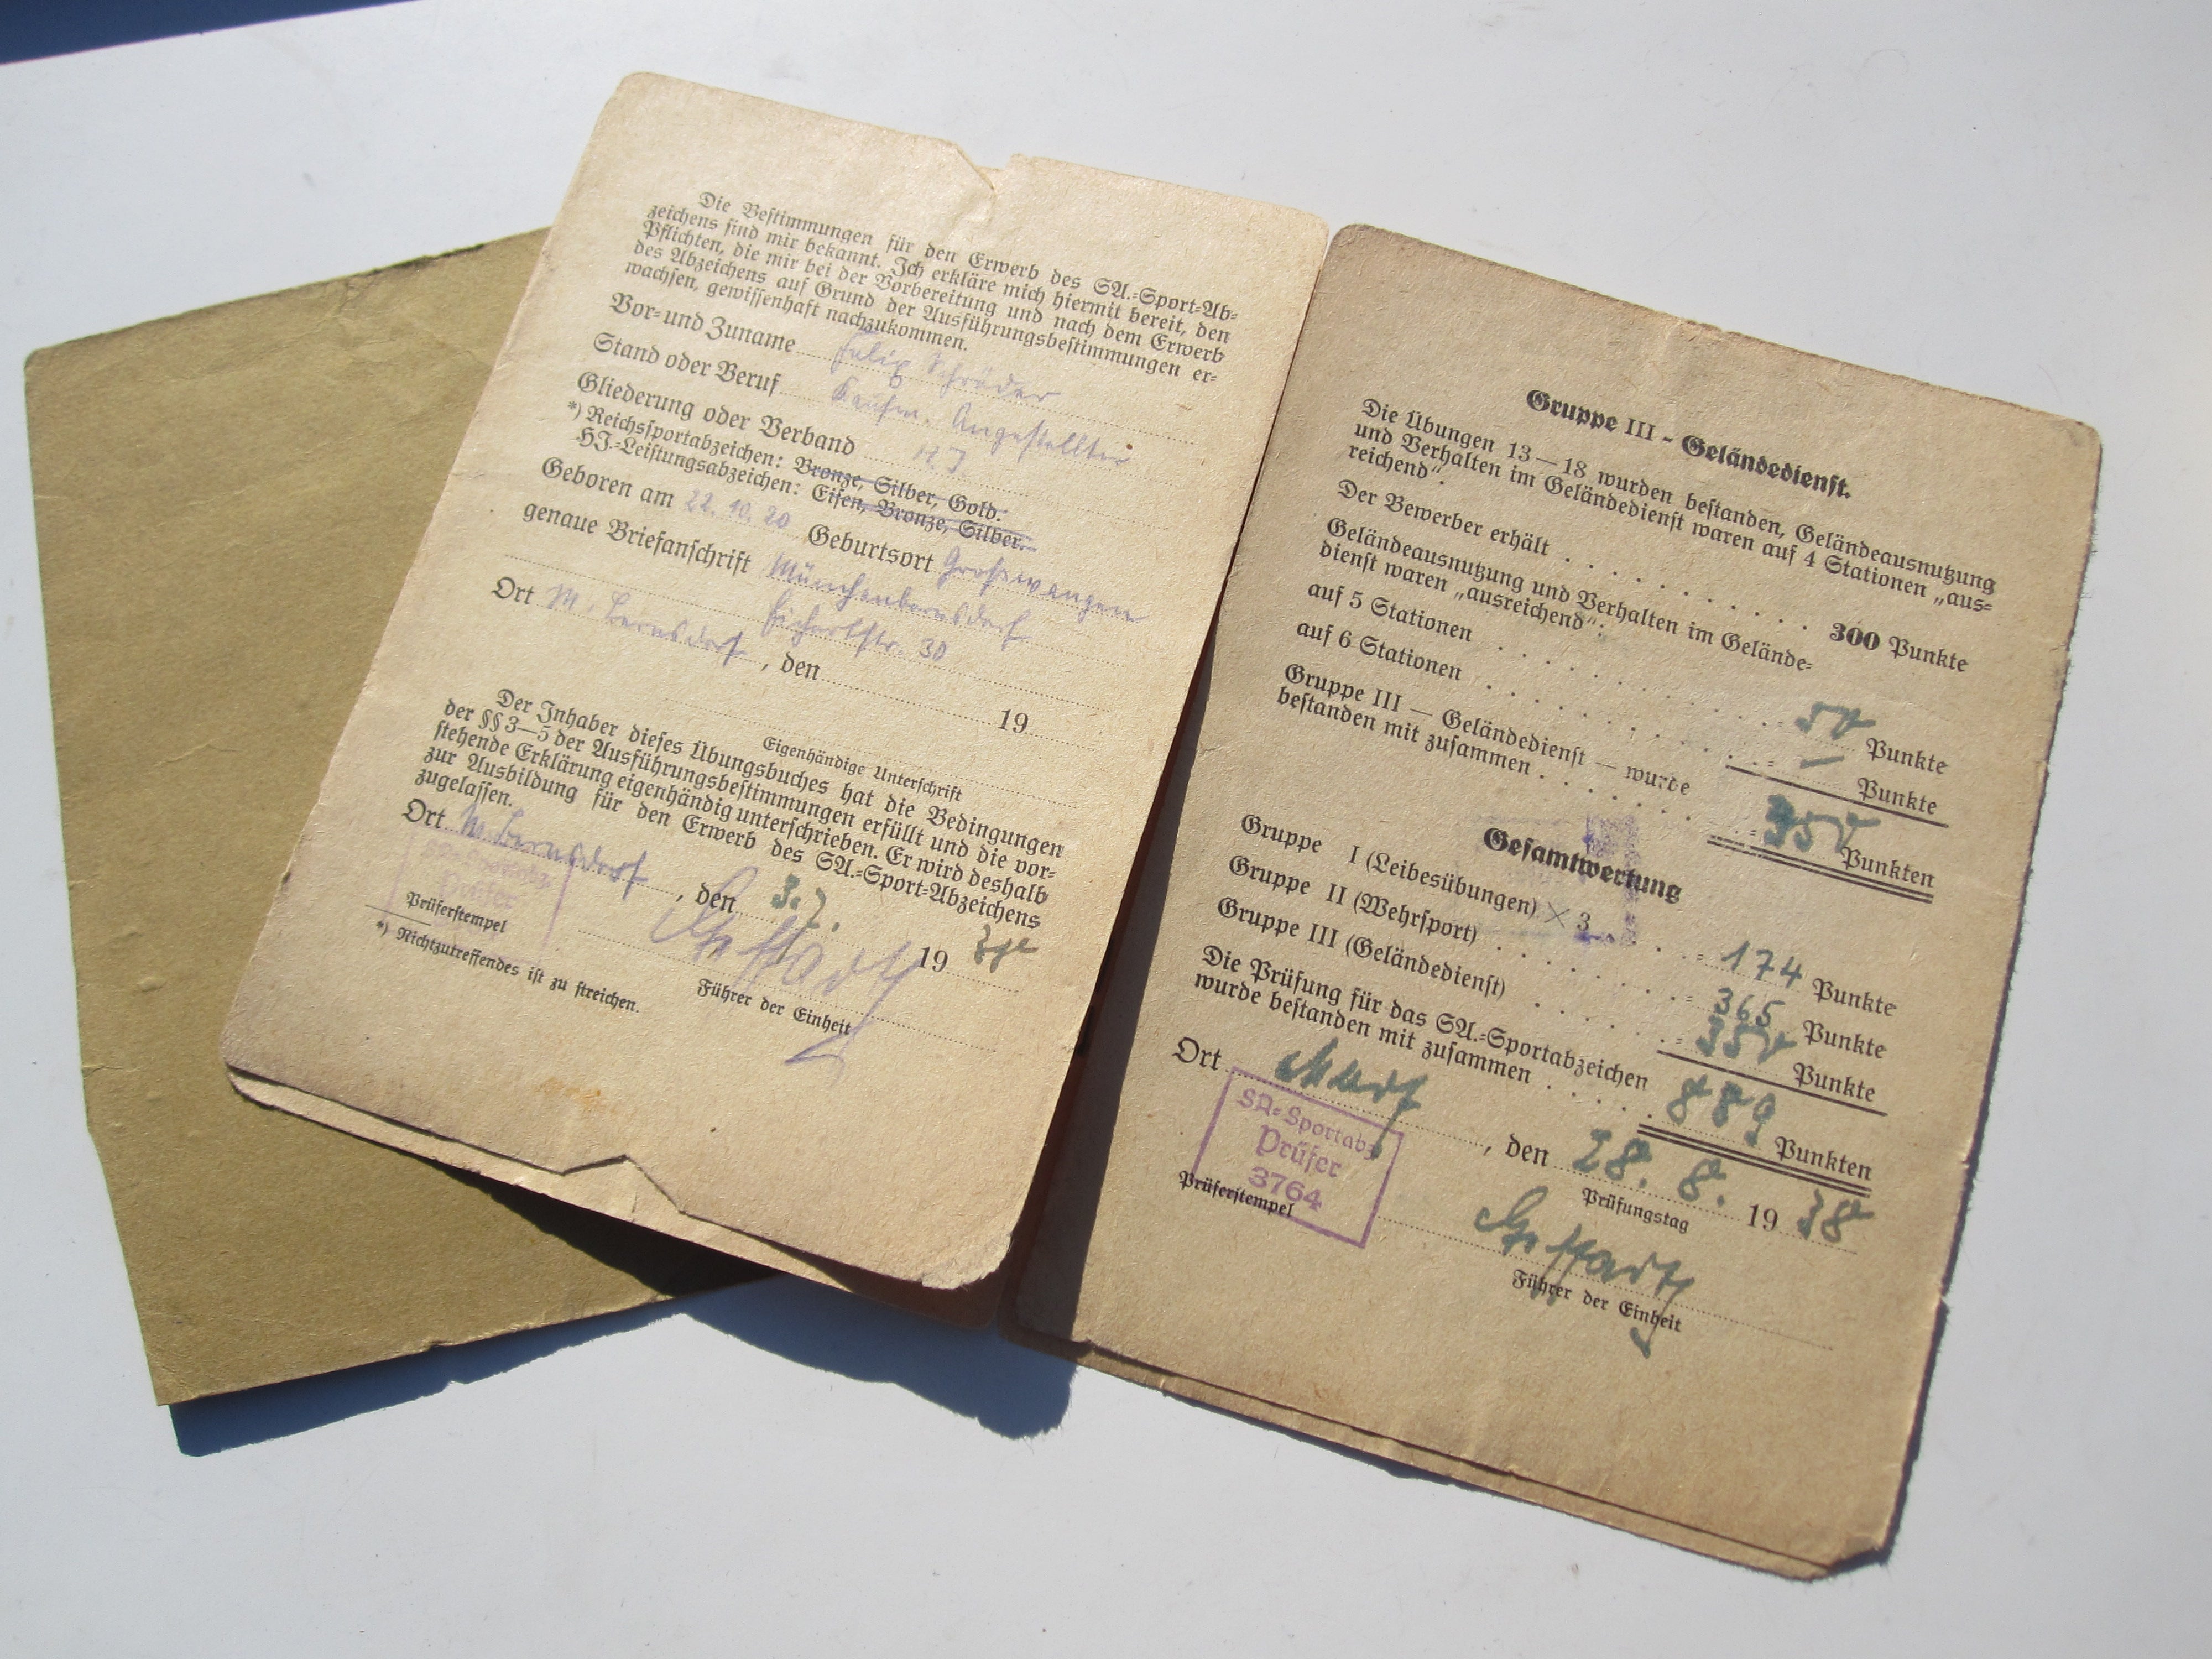 Die Bestimmungen für den Erwerb des SA.-Sport-Ab-
zeichens sind mir bekannt. Ich erkläre mich hiermit bereit, den
Pflichten, die mir bei der Vorbereitung und nach dem Erwerb
des Abzeichens auf Grund der Ausführungsbestimmungen er-
wachsen, gewissenhaft nachzukommen.
Vor- und Zuname Felix Schröder
Stand oder Beruf Kaufm. Angestellter
Gliederung oder Verband HJ
*) Reichssportabzeichen: Bronze, Silber, Gold.
HJ.-Leistungsabzeichen: Eisen, Bronze, Silber.
Geboren am 22.10.20 Geburtsort Großwangen
genaue Briefanschrift Münchenbernsdorf
30
Ort M. Bernsdorf, den 19
Eigenhändige Unterschrift
Der Inhaber dieses Übungsbuches hat die Bedingungen
der §§ 3—5 der Ausführungsbestimmungen erfüllt und die vor-
stehende Erklärung eigenhändig unterschrieben. Er wird deshalb
zur Ausbildung für den Erwerb des SA.-Sport-Abzeichens
zugelassen.
Ort M. Bernsdorf, den 3.7. 19 38
SA-Sportabz.
Prüfer
Prüferstempel
Führer der Einheit
*) Nichtzutreffendes ist zu streichen.
Gruppe III - Geländedienst.
Die Übungen 13—18 wurden bestanden, Geländeausnutzung
und Verhalten im Geländedienst waren auf 4 Stationen „aus-
reichend“.
Der Bewerber erhält . . . . . . . . . . 300 Punkte
Geländeausnutzung und Verhalten im Gelände-
dienst waren „ausreichend“:
auf 5 Stationen . . . . . . . . . = 50 Punkte
auf 6 Stationen . . . . . . . . . = — Punkte
Gruppe III — Geländedienst — wurde
bestanden mit zusammen . . . . . . = 350 Punkten
Gesamtwertung
Gruppe I (Leibesübungen) × 3 . . . = 174 Punkte
Gruppe II (Wehrsport) . . . . . . . = 365 Punkte
Gruppe III (Geländedienst) . . . . . = 350 Punkte
Die Prüfung für das SA.-Sportabzeichen
wurde bestanden mit zusammen . . . . . 889 Punkten
Ort , den 28. 8. 19 38
Prüfungstag
SA-Sportabz.
Prüfer
3764
Prüferstempel
Führer der Einheit